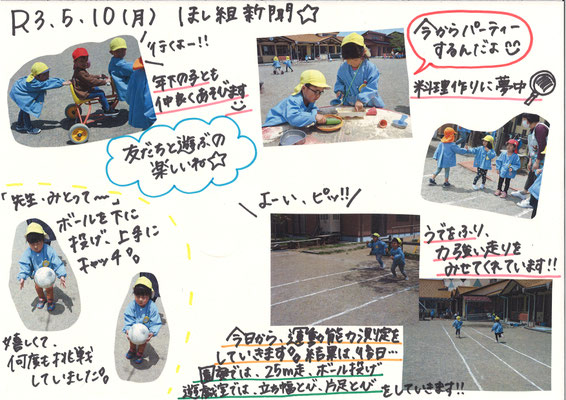 R3.5.10(月) ほし組新聞☆
行くよー!!
年下の子とも
仲良くあそびます
友だちと遊ぶの
楽しいね☆
今からパーティー
するんだよ
料理作りに夢中
「先生、みとって〜」
ボールを下に
投げ、上手に
キャッチ。
嬉しくて、
何度も挑戦
していました。
よーい、ピッ!!
うでをふり、
力強い走りを
みせてくれています!!
今日から、運動能力測定を
していきます。結果は、後日…
園庭では、25m走、ボール投げ
遊戯室では、立ち幅とび、片足とび
をしていきます!!